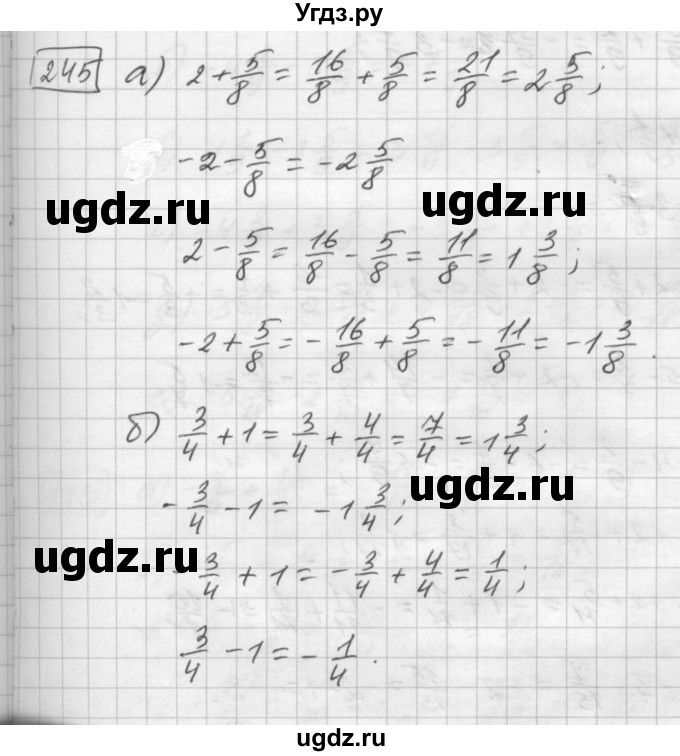 Угдз.ру
245 а) 2 + 5/8 = 16/8 + 5/8 = 21/8 = 2 5/8;
-2 - 5/8 = -2 5/8
ugdz.ru ugdz.ru
2 - 5/8 = 16/8 - 5/8 = 11/8 = 1 3/8;
-2 + 5/8 = - 16/8 + 5/8 = - 11/8 = -1 3/8.
б) 3/4 + 1 = 3/4 + 4/4 = 7/4 = 1 3/4;
ugdz.ru
- 3/4 - 1 = -1 3/4;
ugdz.ru
- 3/4 + 1 = - 3/4 + 4/4 = 1/4;
3/4 - 1 = - 1/4.
ugdz.ru